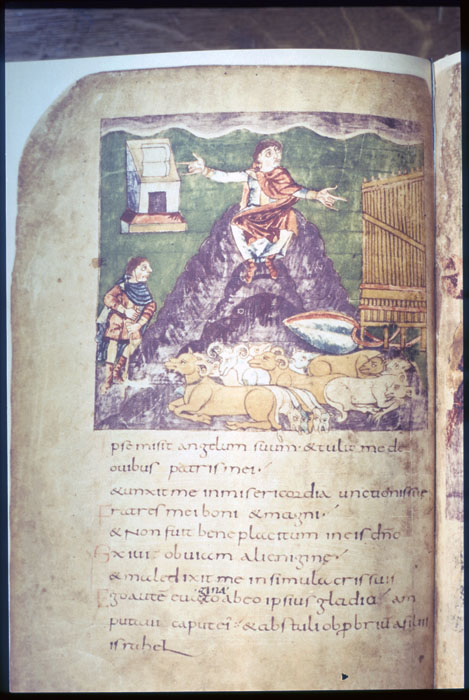 Ipse misit angelum suum · & tulit me de
ouibus patris mei ·
& unxit me in misericordia unctionis sue
Fratres mei boni & magni ·
& Non fuit beneplacitum in eis dño
Exiui obuiam alienigine ·
& maledixit me in simulacris suis
Ego autē euaginato ab eo ipsius gladio · am
putaui caput ei · & abstuli obpbriū a filiis
israhel